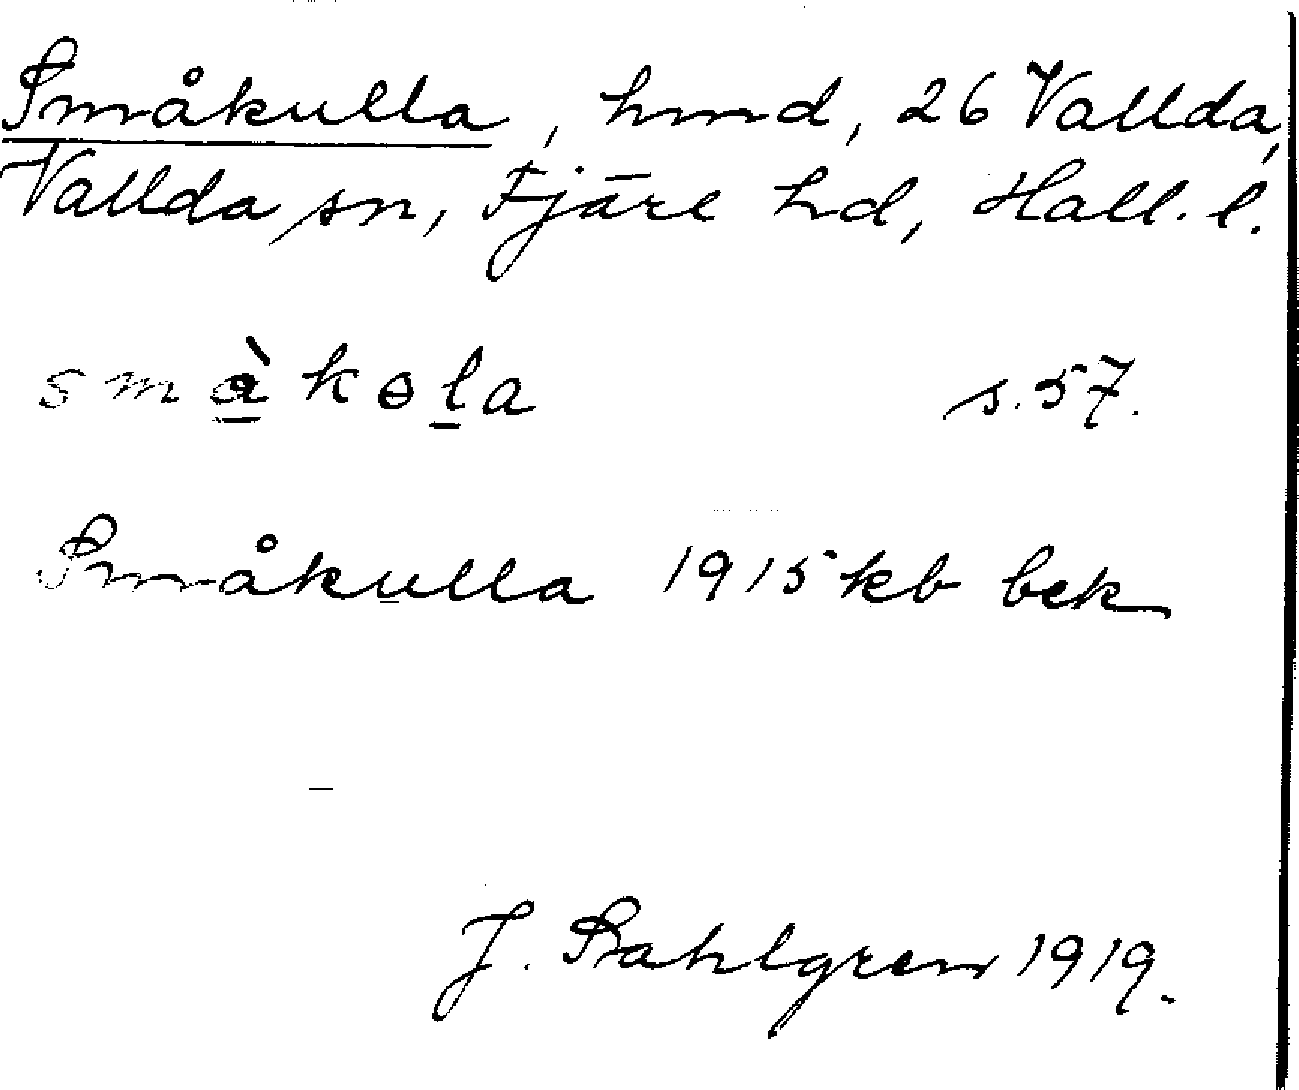 Småkulla, hmd, 26 Vallda,
Vallda sn, Fjäre hd, Hall. l.
smàkɵla s. 57.
Småkulla 1915 kb bek
J. Sahlgren 1919.